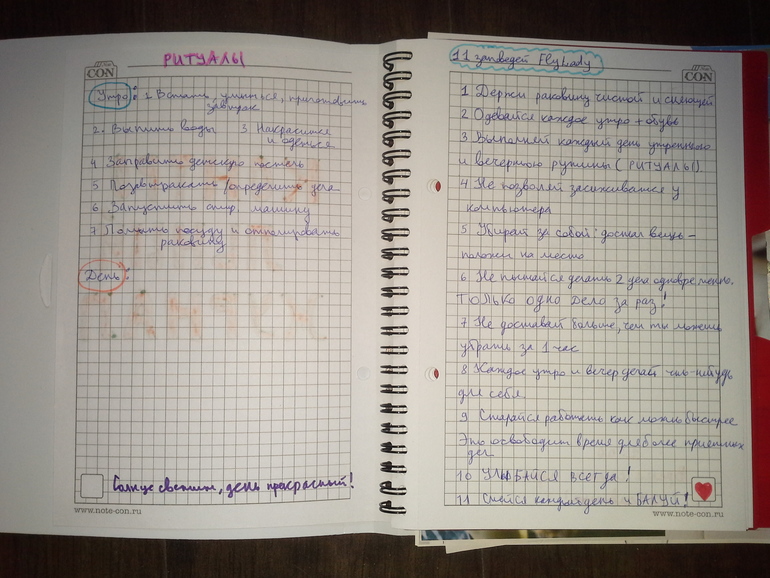 РИТУАЛЫ
CON
Утро: 1 Встать, умыться, приготовить
завтрак
2. Выпить воды 3 Накрасится
и одеться
4 Заправить детскую постель
5 Позавтракать/определить дела
6 Запустить стир. машину
7 Помыть посуду и отполировать
раковину
День:
Солнце светит, день прекрасный!
www.note-con.ru
11 заповедей FlyLady
CON
1 Держи раковину чистой и сияющей
2 Одевайся каждое утро + обувь
3 Выполняй каждый день утреннюю
и вечернюю рутины (РИТУАЛЫ).
4 Не позволяй засиживатся у
компьютера
5 Убирай за собой: достал вещь –
положи на место
6 Не пытайся делать 2 дела одновременно.
ТОЛЬКО ОДНО Дело за раз!
7 Не доставай больше, чем ты можешь
убрать за 1 час
8 Каждое утро и вечер делай что-нибудь
для себя
9 Старайся работать как можно быстрее
Это освободит время для более приятных
дел
10 УЛЫБАЙСЯ ВСЕГДА!
11 Смейся каждый день и БАЛУЙ!
www.note-con.ru